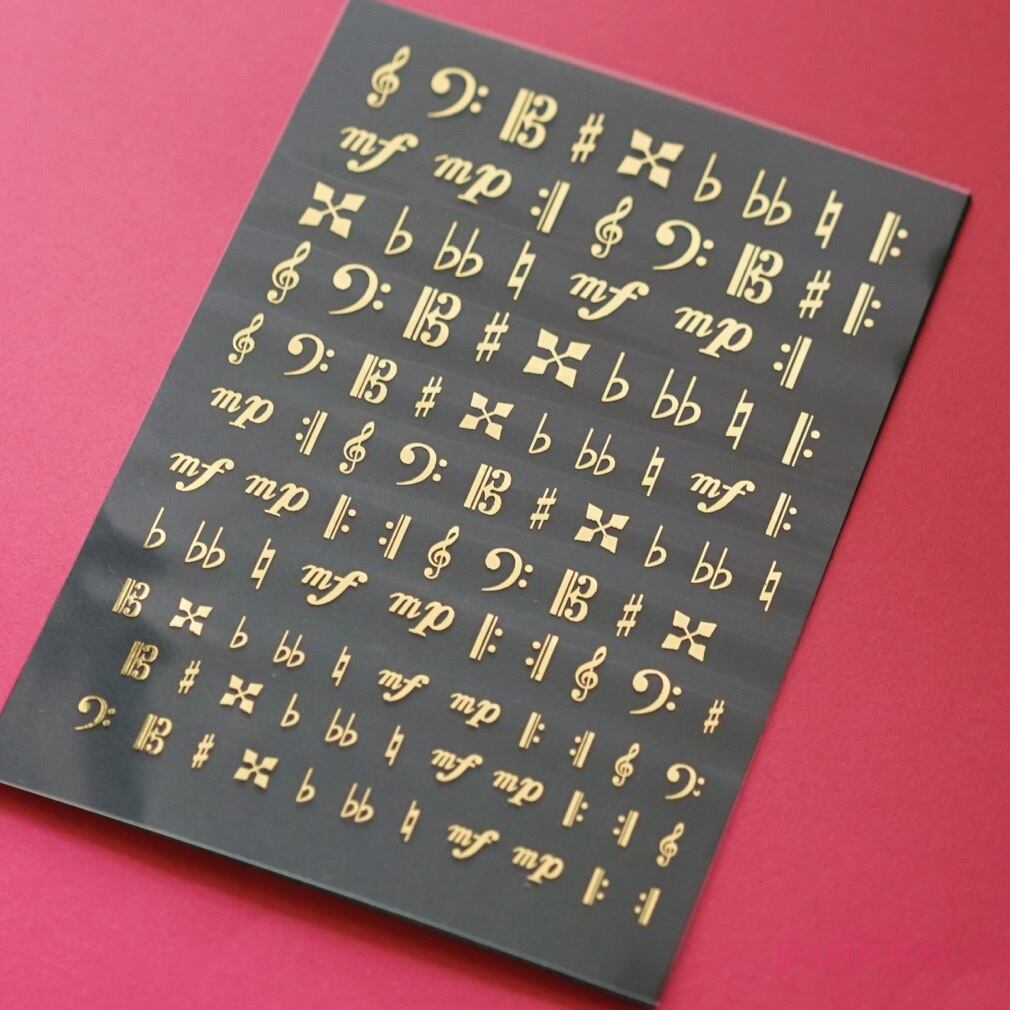 𝄞 𝄢 𝄡 ♯ 𝄪 ♭ 𝄫 ♮ 𝄆
mf mp 𝄇 𝄞 𝄢 𝄡 ♯ 𝄆
𝄪 ♭ 𝄫 ♮ mf mp 𝄇
𝄞 𝄢 𝄡 ♯ 𝄪 ♭ 𝄫 ♮ 𝄆
𝄞 𝄢 𝄡 ♯ 𝄪 ♭ 𝄫 ♮ mf 𝄆
mp 𝄇 𝄞 𝄢 𝄡 ♯ 𝄪 ♭ 𝄫 ♮
mf mp 𝄆 𝄇 𝄞 𝄢 𝄡 ♯ 𝄪
♭ 𝄫 ♮ mf mp 𝄆 𝄇 𝄞 𝄢 ♯
𝄡 𝄪 ♭ 𝄫 ♮ mf mp 𝄆 𝄇 𝄞 𝄢
𝄡 ♯ 𝄪 ♭ 𝄫 ♮ mf mp 𝄆 𝄇 𝄞
𝄢 𝄡 ♯ 𝄪 ♭ 𝄫 ♮ mf mp 𝄆 𝄇